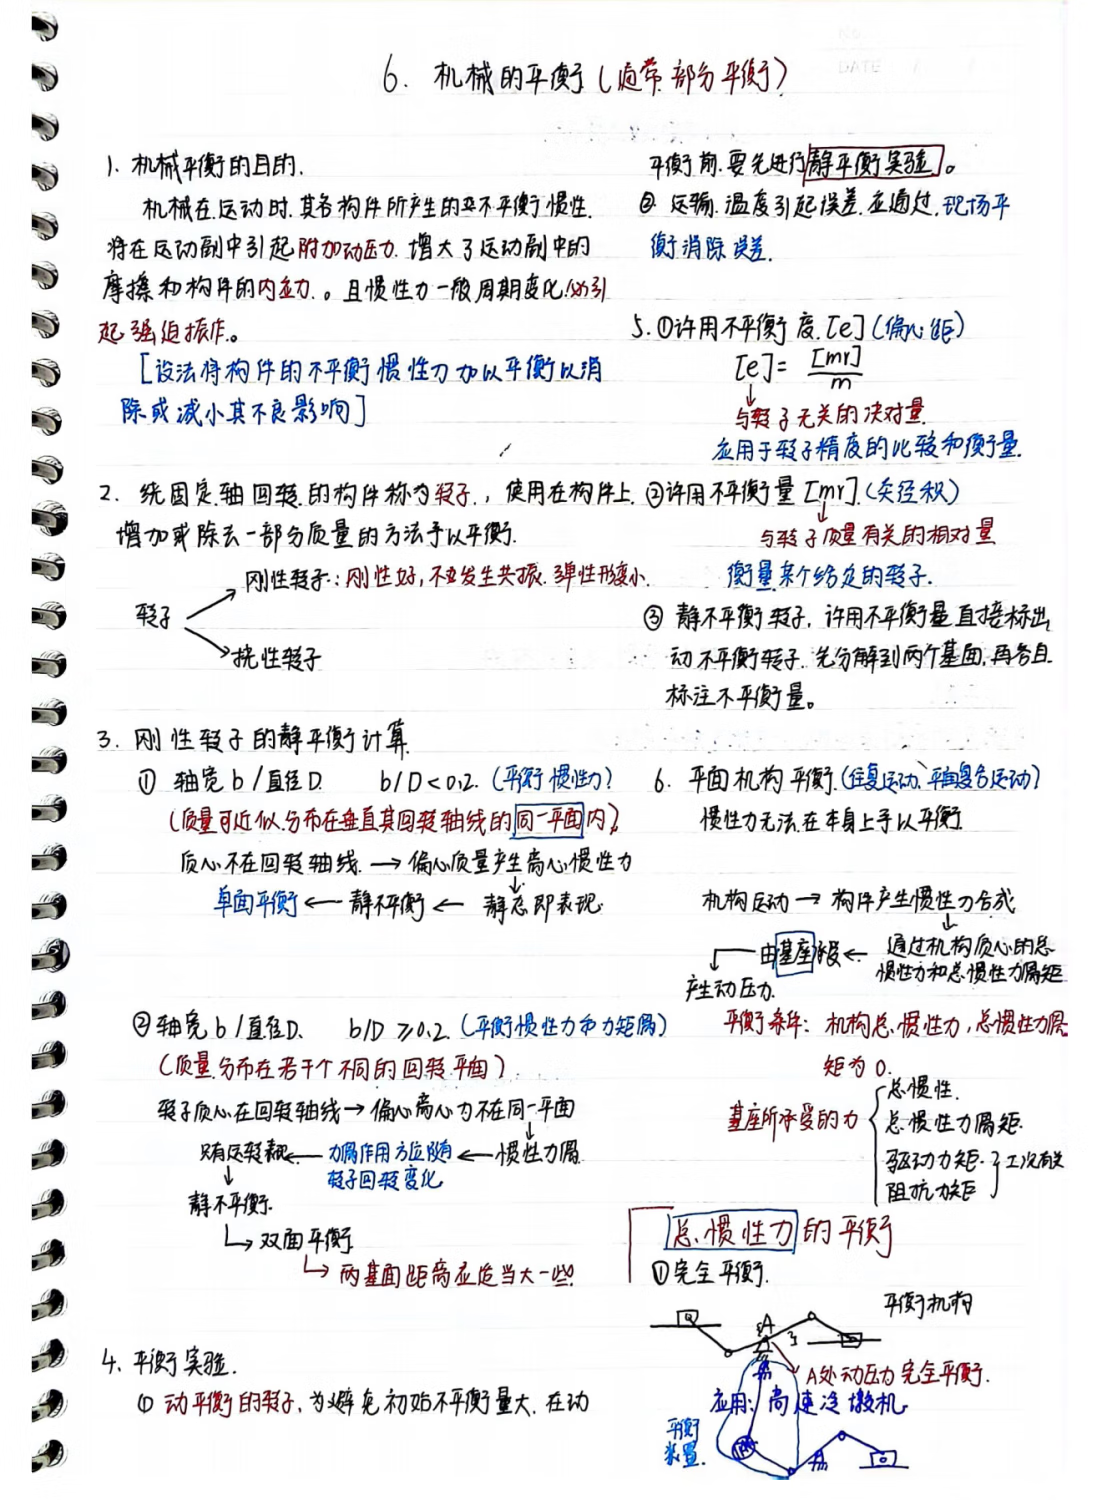 6. 机械的平衡(通常部分平衡)
1. 机械平衡的目的.
机械在运动时.其各构件所产生的不平衡惯性
将在运动副中引起附加动压力.增大了运动副中的
摩擦和构件的内应力.。且惯性力一般周期变化.必引
起强迫振作。
[设法将构件的不平衡惯性力加以平衡以消
除或减小其不良影响]
2. 绕固定轴回转的构件称为转子.,使用在构件上
增加或除去一部分质量的方法予以平衡.
刚性转子:刚性好,不发生共振.弹性形变小.
转子
挠性转子
3. 刚性转子的静平衡计算
① 轴宽b/直径D. b/D<0.2.(平衡惯性力)
(质量可近似分布在垂直其回转轴线的同一平面内)
质心不在回转轴线.→偏心质量产生离心惯性力
↓
单面平衡←静不平衡←静态即表现
②轴宽b/直径D. b/D≥0.2.(平衡惯性力和力矩偶)
(质量分布在若干个不同的回转平面)
转子质心在回转轴线→偏心离心力不在同一平面
↓
←力偶作用方位随←惯性力偶
转子回转变化
↓
静不平衡.
↳双面平衡
↳两基面距离应适当大一些
4. 平衡实验.
① 动平衡的转子,为避免初始不平衡量大.在动
平衡前.要先进行静平衡实验。
② 运输.温度引起误差.应通过.现场平
衡消除误差.
5.①许用不平衡度.[e](偏心距)
[e]=[mr]/m
↓
与转子无关的决对量
应用于转子精度的比较和衡量.
②许用不平衡量[mr].(质径积)
↓
与转子质量有关的相对量
衡量某个给定的转子.
③ 静不平衡转子.许用不平衡量直接标出,
动不平衡转子.先分解到两个基面,再各自
标注不平衡量。
6. 平面机构平衡.(往复运动、平面复合运动)
惯性力无法在本身上予以平衡
机构运动→构件产生惯性力合成
↓
由基座承受←通过机构质心的总
惯性力和总惯性力偶矩
↓
产生动压力.
平衡条件:机构总惯性力,总惯性力偶
矩为0.
基座所承受的力
总惯性.
总惯性力偶矩.
驱动力矩.
阻抗力矩
工况有关
总惯性力的平衡
①完全平衡.
平衡机构
A
3
A处动压力完全平衡.
应用:高速冷墩机
平衡
装置.